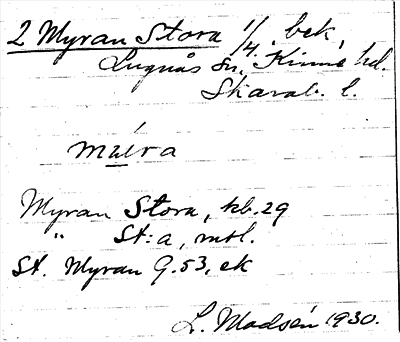 2 Myran Stora 1/4. bek,
Lugnås sn, Kinne hd.
Skarab. l.
múra
Myran Stora, kb. 29
" St:a, mtl.
St. Myran G. 53, ek
L. Modsén 1930.